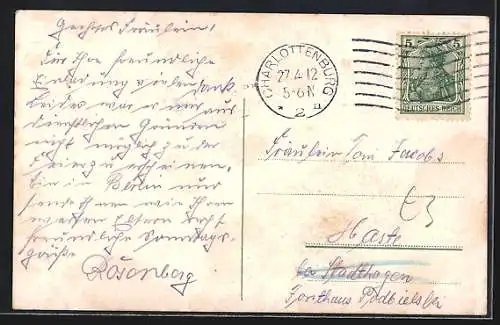 Geehrtes Fräulein!
Für Ihre freundliche
Einladung vielen Dank.
Leider war es mir aus
dienstlichen Gründen
nicht möglich zu der
Feier zu erscheinen.
Bin in Berlin nur
sende Ihnen wie Ihren
werten Eltern recht
freundliche Sonntags-
grüße
Rosenberg
CHARLOTTENBURG
27.4.12
5-6N
* 2 n
5 5
DEUTSCHES REICH
Fräulein Toni Jacobs
Haste
bei Stadthagen
Forsthaus